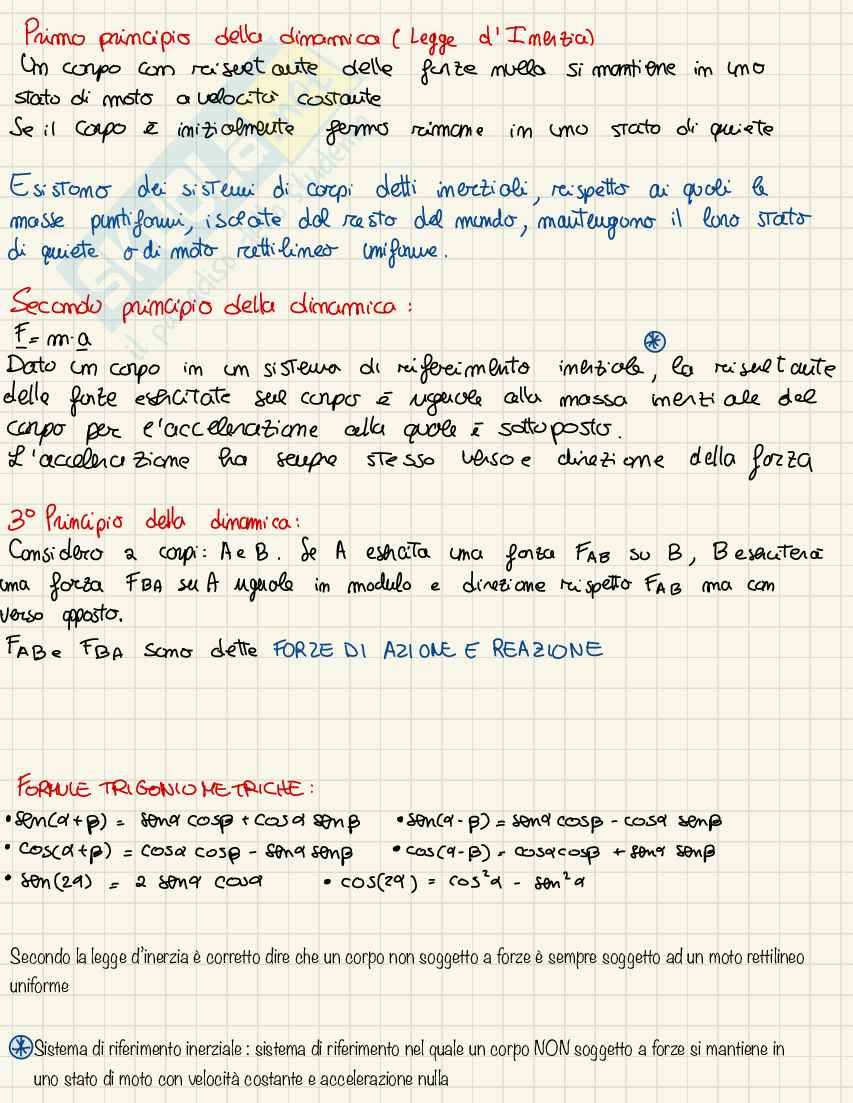 Primo principio della dinamica (Legge d'Inerzia)
Un corpo con risultante delle forze nulla si mantiene in uno
stato di moto a velocità costante
Se il corpo è inizialmente fermo rimane in uno stato di quiete
Esistono dei sistemi di corpi detti inerziali, rispetto ai quali le
masse puntiformi, isolate dal resto del mondo, mantengono il loro stato
di quiete o di moto rettilineo uniforme.
Secondo principio della dinamica:
F = m·a
Dato un corpo in un sistema di riferimento inerziale, la risultante
delle forze esercitate sul corpo è uguale alla massa inerziale del
corpo per l'accelerazione alla quale è sottoposto.
L'accelerazione ha sempre stesso verso e direzione della forza
3° Principio della dinamica:
Considero 2 corpi: A e B. Se A esercita una forza FAB su B, B eserciterà
una forza FBA su A uguale in modulo e direzione rispetto FAB ma con
verso opposto.
FAB e FBA sono dette FORZE DI AZIONE E REAZIONE
FORMULE TRIGONIOMETRICHE:
• sen(α+β) = senα cosβ + cosα senβ • sen(α-β) = senα cosβ - cosα senβ
• cos(α+β) = cosα cosβ - senα senβ • cos(α-β) = cosα cosβ + senα senβ
• sen(2α) = 2 senα cosα • cos(2α) = cos²α - sen²α
Secondo la legge d'inerzia è corretto dire che un corpo non soggetto a forze è sempre soggetto ad un moto rettilineo
uniforme
* Sistema di riferimento inerziale : sistema di riferimento nel quale un corpo NON soggetto a forze si mantiene in
uno stato di moto con velocità costante e accelerazione nulla